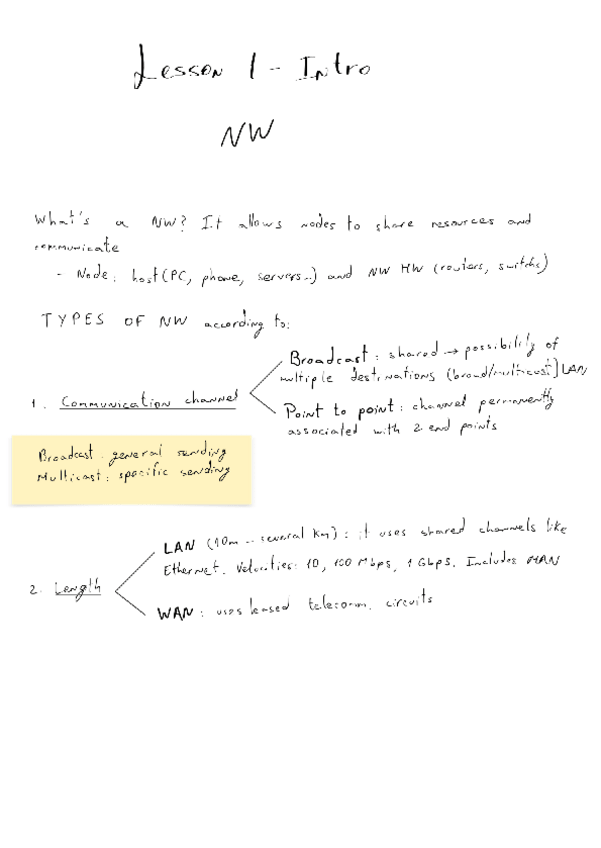 Lesson 1 - Intro
NW
What's a NW? It allows nodes to share resources and
communicate
- Node: host (PC, phone, servers..) and NW HW (routers, switchs)
TYPES OF NW according to:
Broadcast: shared → possibility of
multiple destinations (broad/multicast) LAN
1. Communication channel
Point to point: channel permanently
associated with 2 end points
Broadcast: general sending
Multicast: specific sending
LAN (10m - several Km): it uses shared channels like
Ethernet. Velocities: 10, 100 Mbps, 1 Gbps. Includes MAN
2. Length
WAN: uses leased telecomm. circuits